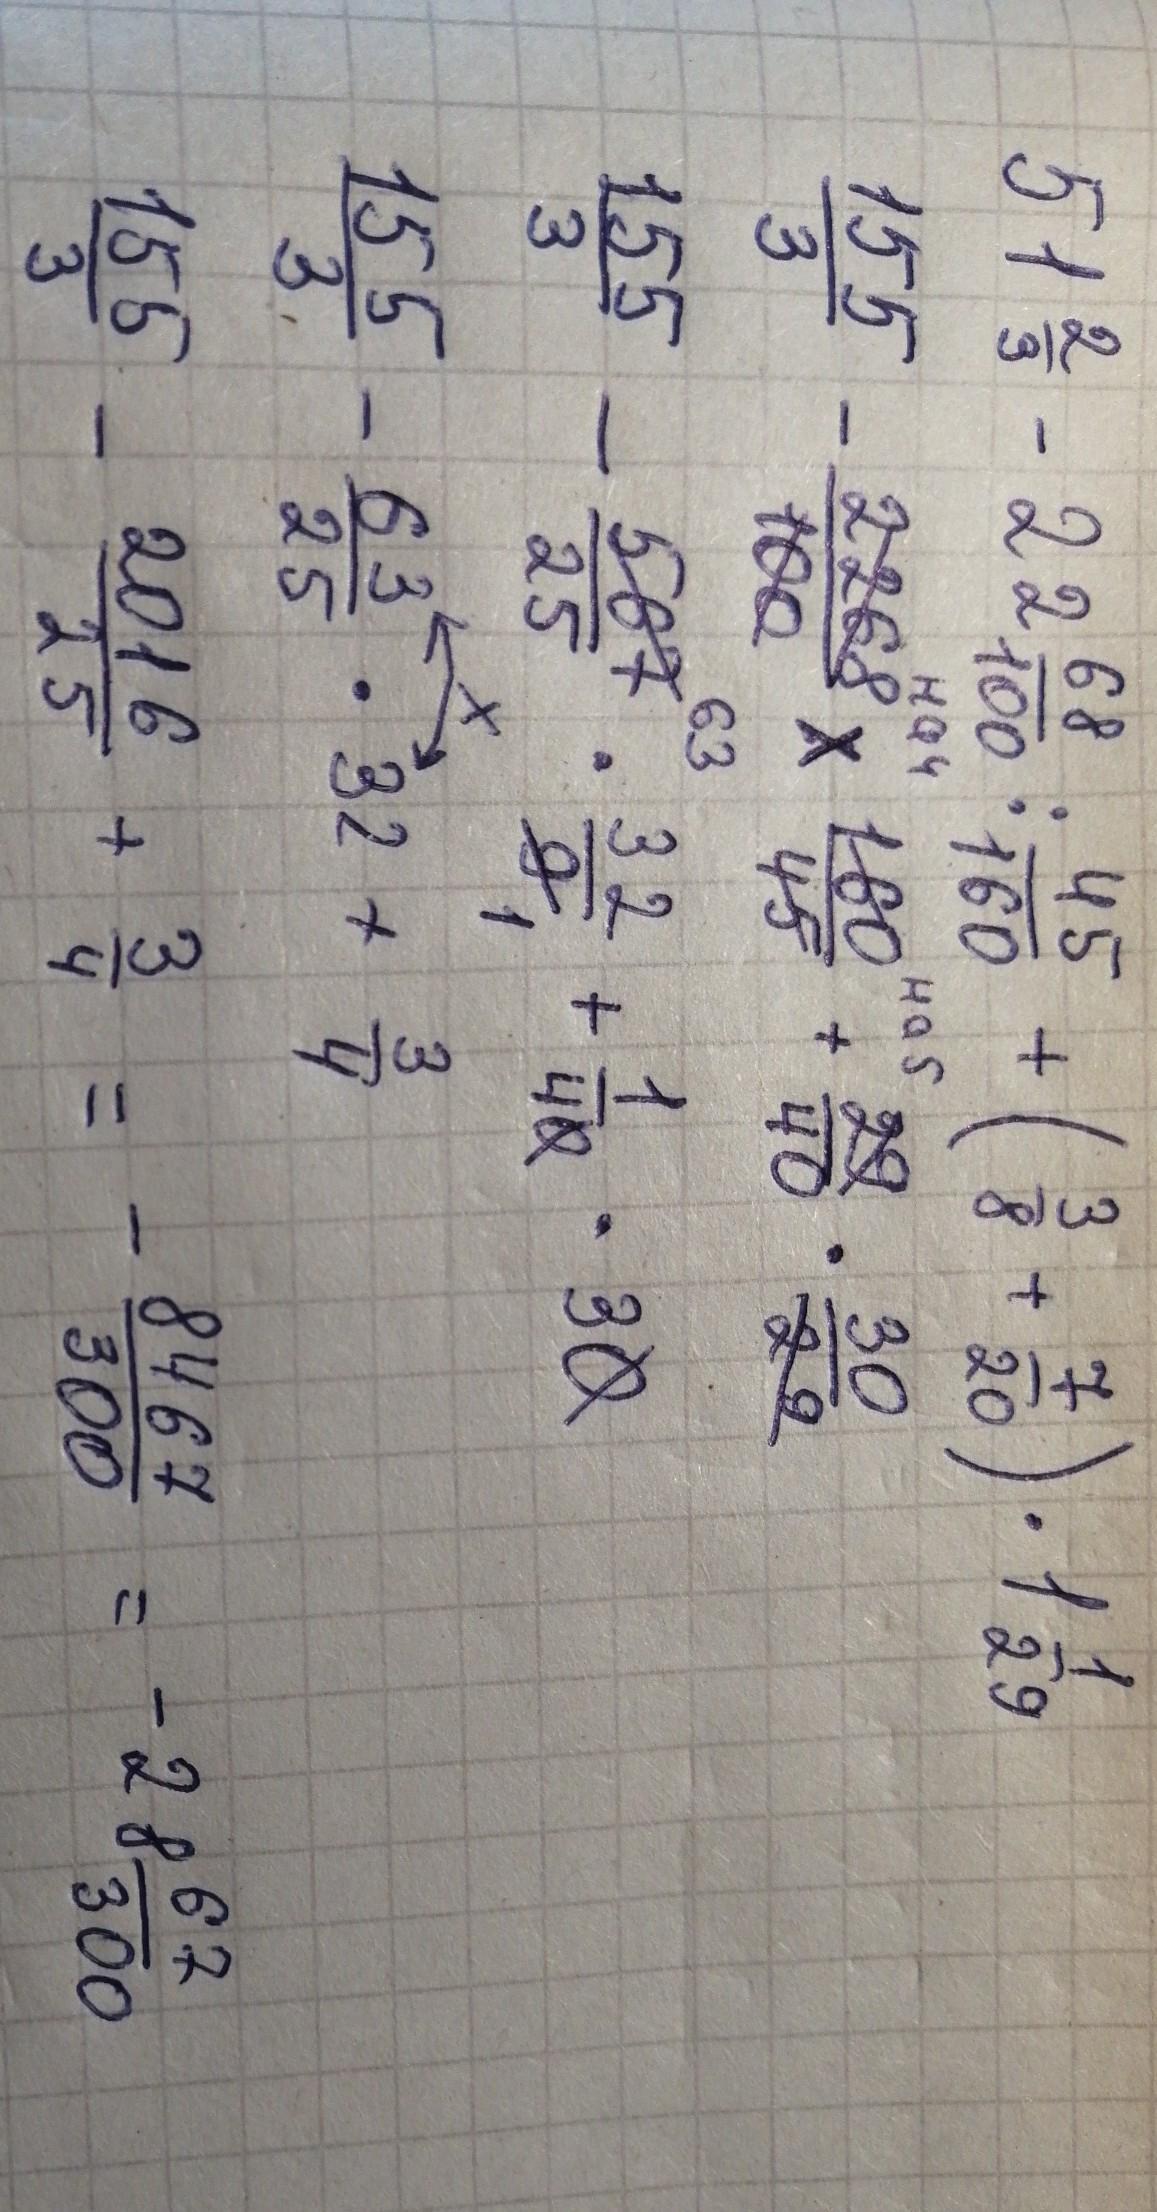 51 2/3 - 22 68/100 : 45/160 + ( 3/8 + 7/20 ) · 1 1/29
155/3 - 2268/100 на 4 x 160/45 на 5 + 29/40 · 30/29
155/3 - 567/25 63 · 32/9 1 + 1/40 · 30
155/3 - 63/25 x · 32 + 3/4
155/3 - 2016/25 + 3/4 = - 8467/300 = - 28 67/300